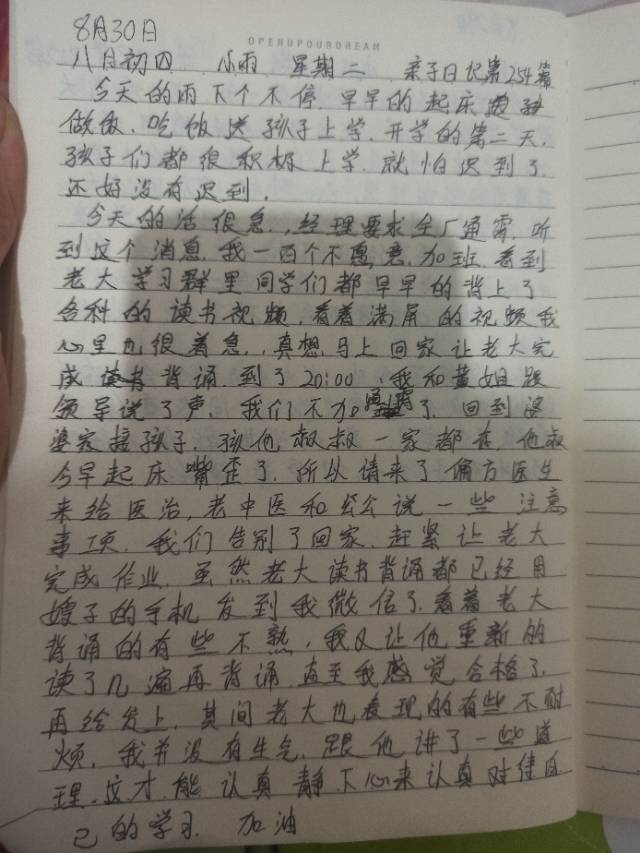 8月30日
OPENUPOURDREAM
八月初四 小雨 星期二 亲子日记第254篇
今天的雨下个不停.早早的起床
做饭.吃饭送孩子上学.开学的第二天.
孩子们都很积极上学.就怕迟到了
还好没有迟到.
今天的活很急.,经理要求全厂通霄.听
到这个消息.我一百个不愿意.加班.看到
老大学习群里同学们都早早的背上了
各科的读书视频,看着满屏的视频我
心里也很着急.,真想马上回家让老大完
成 背诵.到了20:00.我和黄姐跟
领导说了声.我们不加 了.回到婆
婆家接孩子.孩他叔叔一家都在.他叔
今早起床嘴歪了.所以请来了偏方医生
来给医治,老中医和公公说一些注意
事项.我们告别了回家.赶紧让老大
完成作业.虽然老大读书背诵都已经用
嫂子的手机发到我微信了.看着老大
背诵的有些不熟,我又让他重新的
读了几遍再背诵.直至我感觉合格了.
再给发上.其间老大也表现的有些不耐
烦.我并没有生气.跟他讲了一些道
理.这才能认真静下心来认真对待自
己的学习.加油